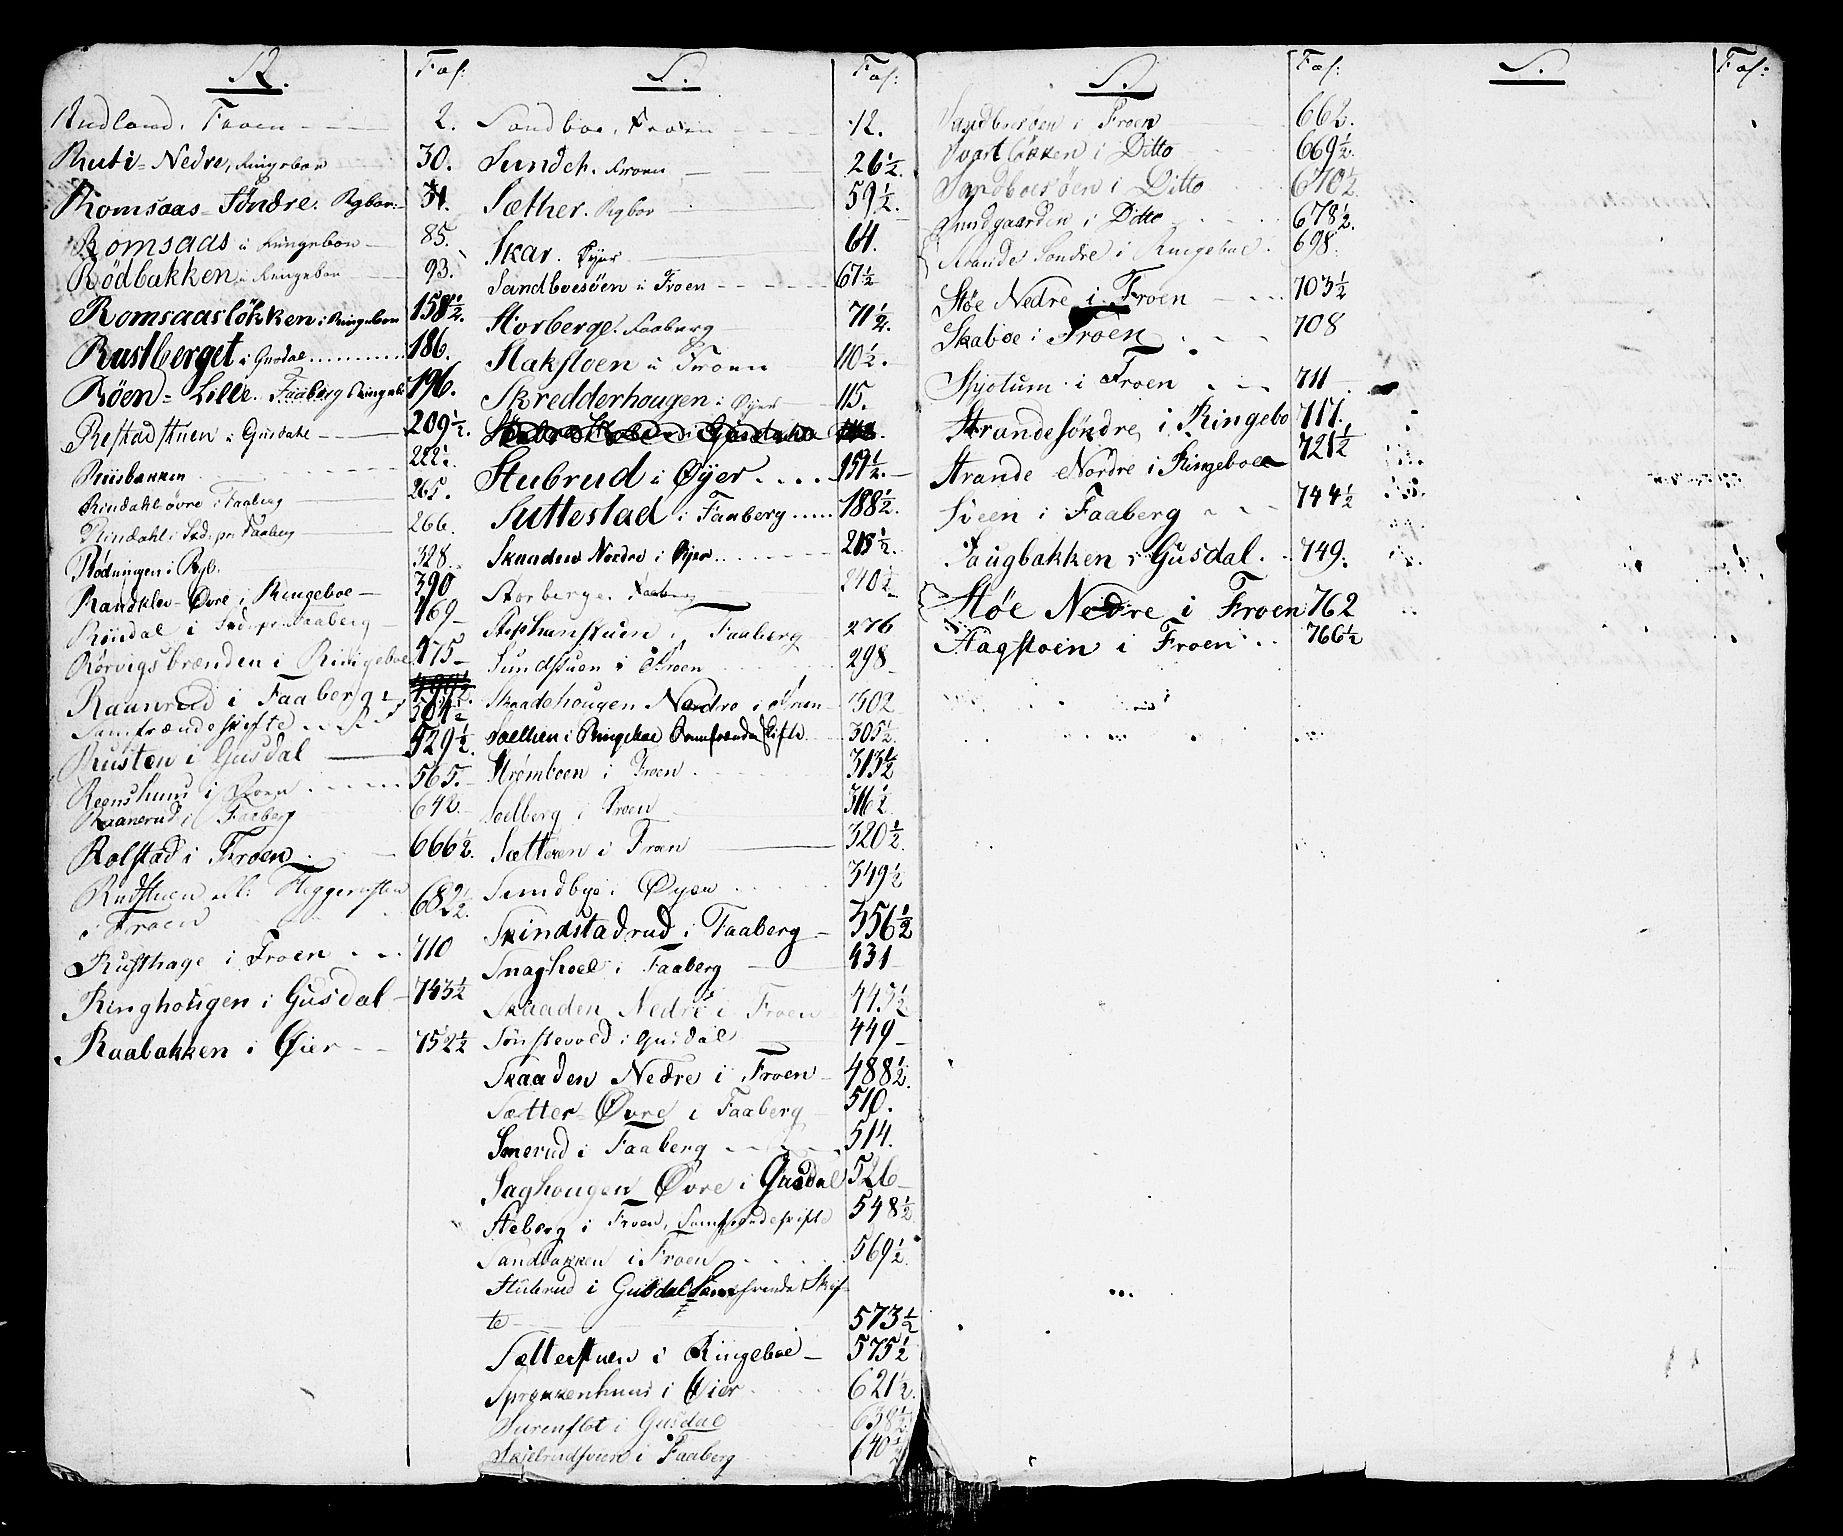 R. Fol:
Rudland, Froen 2.
Ruti-Nedre, Ringeboe 30.
Romsaas-Söndre. Rgboe: 31.
Romsaas i Ringeboe 85.
Rödbakken i Ringeboe 93.
Romsaaslökken i Ringeboe 158½.
Rustberget i Gusdal 186.
Röen-Lille. Faaberg 196.
Restadstuen i Gusdahl 209½.
Riisbakken 222½.
Rindahl øvre i Faaberg 265.
Rindahl i Faaberg 266.
Rödningen i Rgb. 328.
Randklev-Øvre i Ringeboe 390
Rindal i Faaberg 469
Rörvigsbrænden i Ringeboe 475
Raanrud i Faaberg
Samfrændeskifte 504½
Rusten i Gusdal 529½.
Reenshuus i Froen 565.
Raanerud i Faaberg 642
Rolstad i Froen 666½.
Rudstuen
i Froen 682½.
Rusthage i Froen 710
Ringhougen i Gusdal 743½
Raabakken i Øier 752½
S. Fol:
Sandboe, Froen 12.
Sundet. Froen 26½.
Sæther. Rgboe 59½.
Skar. Øyer 64.
Sandboesöen i Froen 67½
Storberget Faaberg 71½.
Stakstoen i Froen 110½.
Skredderhougen i Øyer 115.
Stubrud i Øyer 151½.
Suttestad i Faaberg 188½.
Skaaden Nordre i Øyer 215½.
Storberget. Faaberg 240½
i Faaberg 276
Sundstuen i Froen 298
Skaadehougen Nordre i Froen 302
Soelhen i Ringeboe Samfrænde Skifte 305½
Strømboen i Froen 313½
Soelberg i Froen 316½
Sætteren i Froen 320½.
Sundbye i Øyen 349½
Skindstadrud i Faaberg 356½
Snaghoel i Faaberg 431
Skaaden Nedre i Froen 445½
Sönstevold i Gusdal 449
Skaaden Nedre i Froen 488½.
Sætter-Øvre i Faaberg 510.
Smerud i Faaberg 514.
Saghougen Øvre i Gusdal 526
Steberg i Froen, Samfrændeskifte 548½
Sandbakken i Froen 569½.
Stubrud i Gusdal Samfrænde Skif-
te 573½
Sætterstuen i Ringeboe 575½
Sprækkenhuus i Øier 621½.
Surenflot i Gusdal 638½
Skjelrudsveen i Faaberg 640½
S. Fol:
Sandboesöen i Froen 662.
Svartløkken i Ditto 669½.
Sandboesöen i Ditto 670½
Sundgaarden i Ditto 678½.
Strande Søndre i Ringeboe. 698.
Støe Nedre i Froen 703½
Skaboe i Froen 708
Skjotum i Froen 711
Strandesøndre, i Ringebo 717.
Strande Nordre i Ringeboe 721½
Sveen i Faaberg 744½
Haugbakken i Gusdal. 749.
Støe Nedre i Froen 762
Hagstoen i Froen 766½
S. Fol: